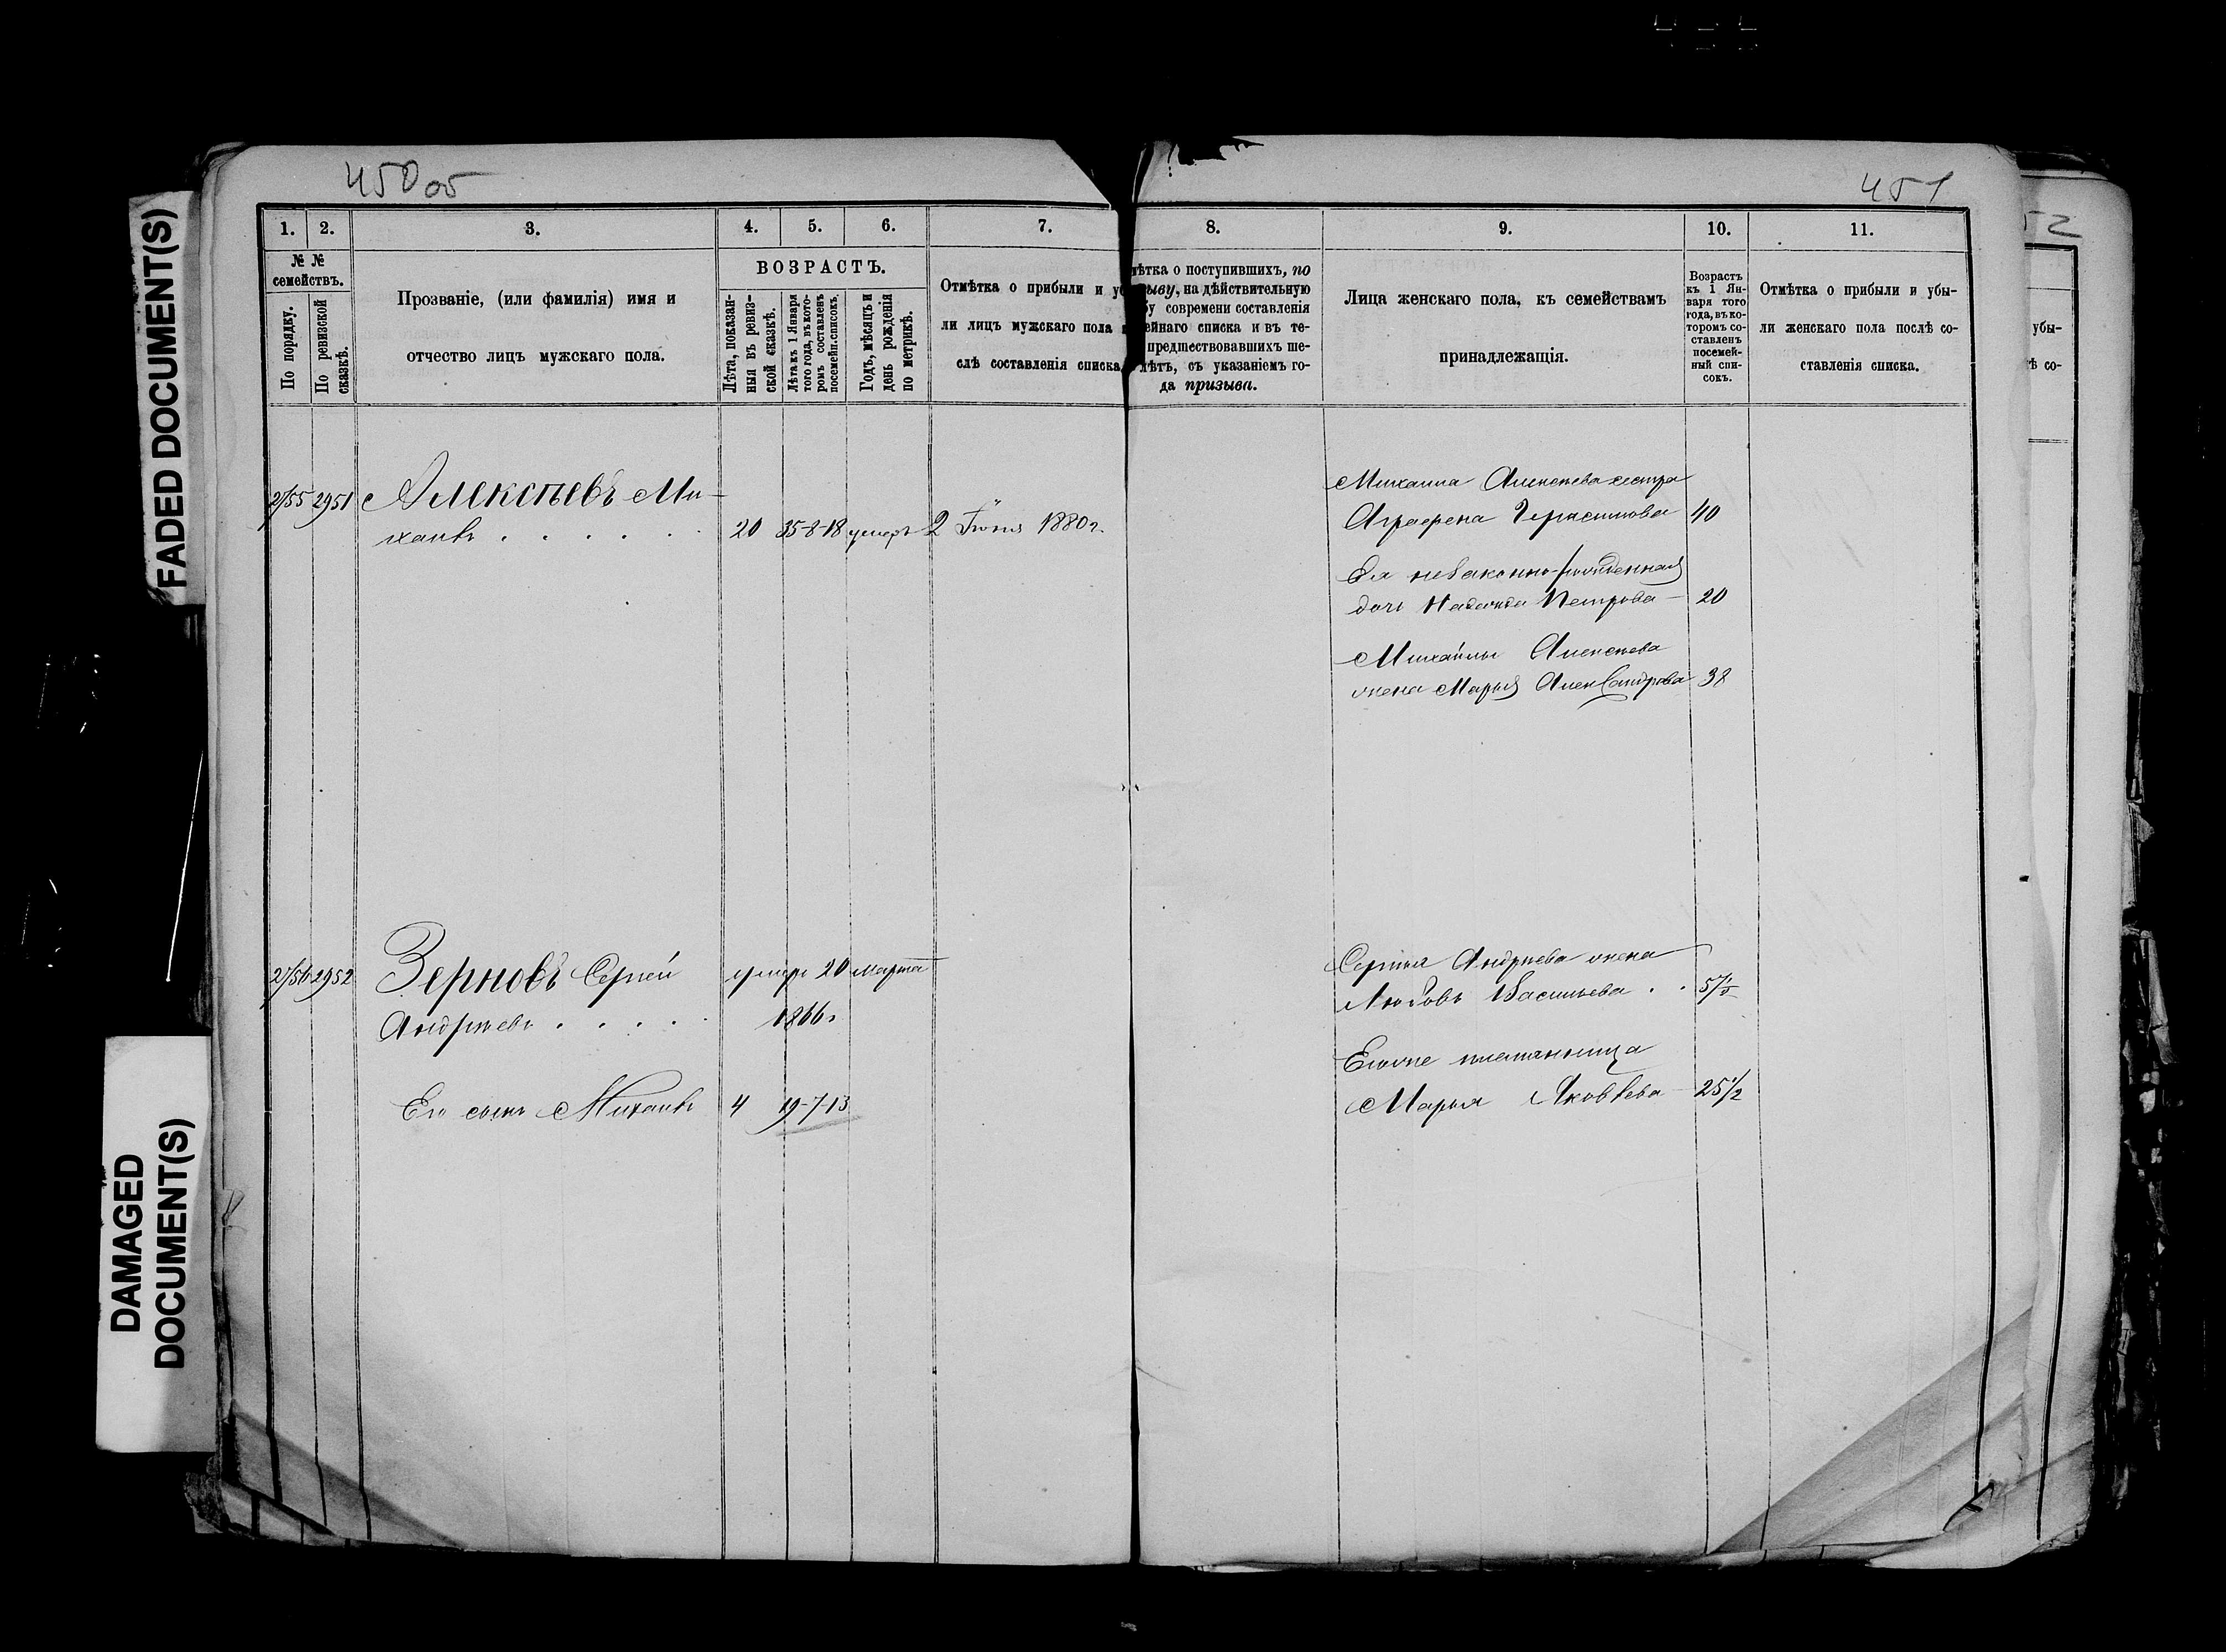 450 об
451
52
FADED DOCUMENT(S)
DAMAGED
DOCUMENT(S)
1. 2. 3. 4. 5. 6. 7.
№ №
семействъ.
По порядку.
По ревизской
сказкѣ.
Прозваніе, (или фамилія) имя и
отчество лицъ мужскаго пола.
ВОЗРАСТЪ.
Лѣта, показан-
ныя въ ревиз-
ской сказкѣ.
Лѣта къ 1 Января
того года, въ кото-
ромъ составленъ
посемейн. списокъ.
Годъ, мѣсяцъ и
день рожденія
по метрикѣ.
Отмѣтка о прибыли и уб
ли лицъ мужскаго пола
слѣ составленія списка
8. 9. 10. 11.
ѣтка о поступившихъ, по
ыву, на дѣйствительную
бу современи составленія
ейнаго списка и въ те-
предшествовавшихъ ше-
лѣтъ, съ указаніемъ го-
да призыва.
Лица женскаго пола, къ семействамъ
принадлежащія.
Возрастъ
къ 1 Ян-
варя того
года, въ ко-
торомъ со-
ставленъ
посемей-
ный спи-
сокъ.
Отмѣтка о прибыли и убы-
ли женскаго пола послѣ со-
ставленія списка.
убы-
ѣ со-
2155 2951 Алексѣевъ Ми-
хаилъ . . . . . . 20 35-8-18 умеръ 2 Іюня 1880 г.
Михаила Алексѣева сестра
Аграфена Герасимова 40
Ея незаконно-рожденная
дочь Надежда Петрова 20
Михаилы Алексѣева
жена Марья Александрова 38
2156 2952 Зерновъ Сергѣй умеръ 20 марта
Андреевъ . . . . . 1866 г
Его сынъ Михаилъ 4 19-7-13
Сергѣя Андреева жена
Любовь Васильева . .
Егоже племянница
Марья Яковлева 25 1/2